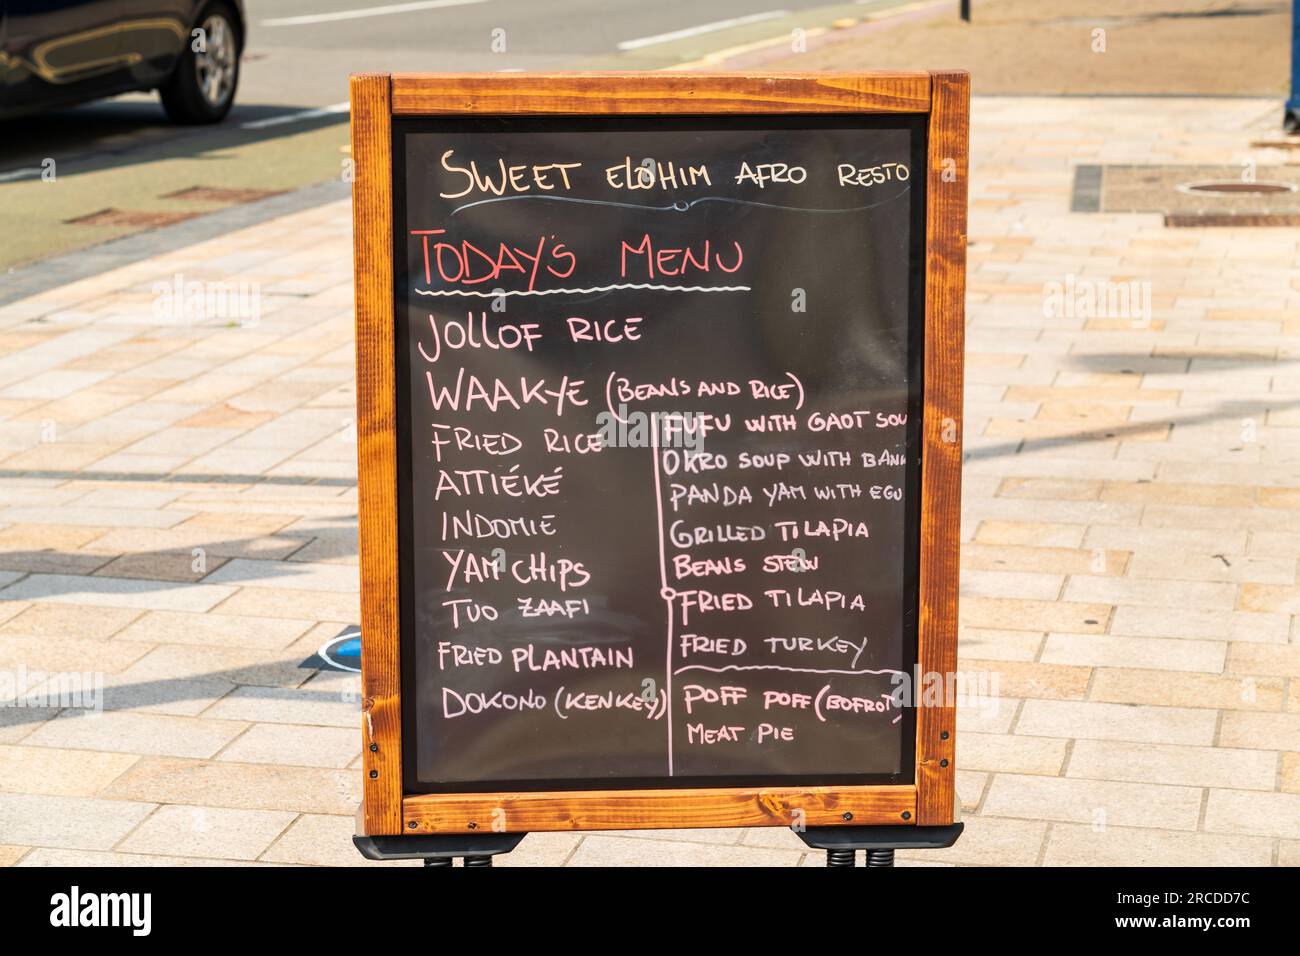 SWEET ELOHIM AFRO RESTO
TODAY'S MENU
JOLLOF RICE
WAAKYE (BEANS AND RICE)
FRIED RICE
ATTIÉKÉ
INDOMIE
YAM CHIPS
TUO ZAAFI
FRIED PLANTAIN
DOKONO (KENKEY)
FUFU WITH GAOT SOU
OKRO SOUP WITH BANK
PANDA YAM WITH EGU
GRILLED TILAPIA
BEANS STEW
FRIED TILAPIA
FRIED TURKEY
POFF POFF (BOFROT)
MEAT PIE
alamy
Image ID: 2RCDD7C
www.alamy.com